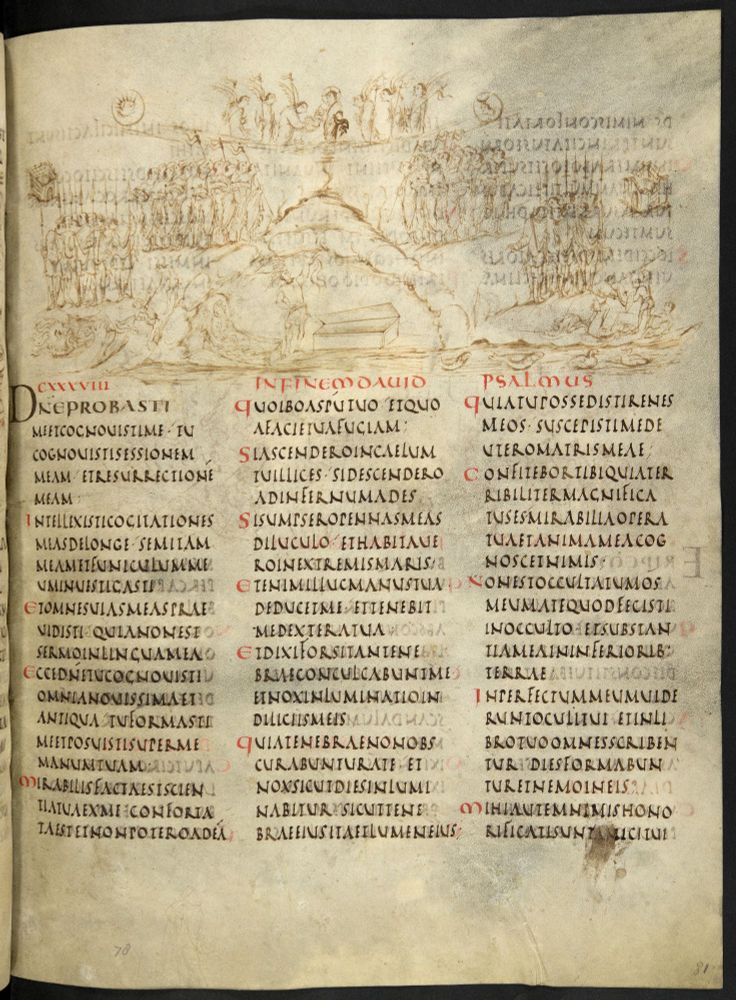 CXXXVIII
INFINEM DAUID
PSALMUS
DNE PROBASTI
MEETCOGNOUISTIME· TU
COGNOUISTISESSIONEM
MEAM· ETRESURRECTIONĒ
MEAM·
INTELLEXISTICOGITATIONES
MEASDELONGE· SEMITAM
MEAMETFUNICULUMME
UMINUESTIGASTI
ETOMNESUIASMEASPRAE
UIDISTI· QUIANONEST
SERMOINLINGUAMEA
ECCEDNETUCOGNOUISTI
OMNIANOUISSIMAET
ANTIQUA· TUFORMASTI
MEETPOSUISTISUPERME
MANUMTUAM·
MIRABILISFACTAESTSCIEN
TIATUAEXME· CONFORTA
TAESTETNONPOTEROADEĀ
QUOIBOASPŪTUO· ETQUO
AFACIETUAFUGIAM·
SIASCENDEROINCAELUM
TUILLICES· SIDESCENDERO
ADINFERNUMADES
SISUMPSEROPENNASMEAS
DILUCULO· ETHABITAUE
ROINEXTREMISMARIS
ETENIMILLUCMANUSTUA
DEDUCETME· ETTENEBIT
MEDEXTERATUA
ETDIXIFORSITANTENE
BRAECONCULCABUNTME
ETNOXINLUMINATIOIN
DILICIISMEIS
QUIATENEBRAENONOBS
CURABUNTURATE· ET
NOXSICUTDIESINLUMI
NABITUR· SICUTTENE
BRAEEIUSITAETLUMENEIUS
QUIATUPOSSEDISTIRENES
MEOS· SUSCEPISTIMEDE
UTEROMATRISMEAE·
CONFITEBORTIBIQUIATER
RIBILITERMAGNIFICA
TUSESMIRABILIAOPERA
TUAETANIMAMEACOG
NOSCETNIMIS
NONESTOCCULTATUMOS
MEUMATEQUODFECISTI
INOCCULTO· ETSUBSTAN
TIAMEAININFERIORIB·
TERRAE
INPERFECTUMMEUMUIDE
RUNTOCULITUI· ETINLI
BROTUOOMNESSCRIBEN
TUR· DIESFORMABUN
TURETNEMOINEIS
MIHIAUTEMNIMISHONO
RIFICATISUNTAMICITUI
78
81